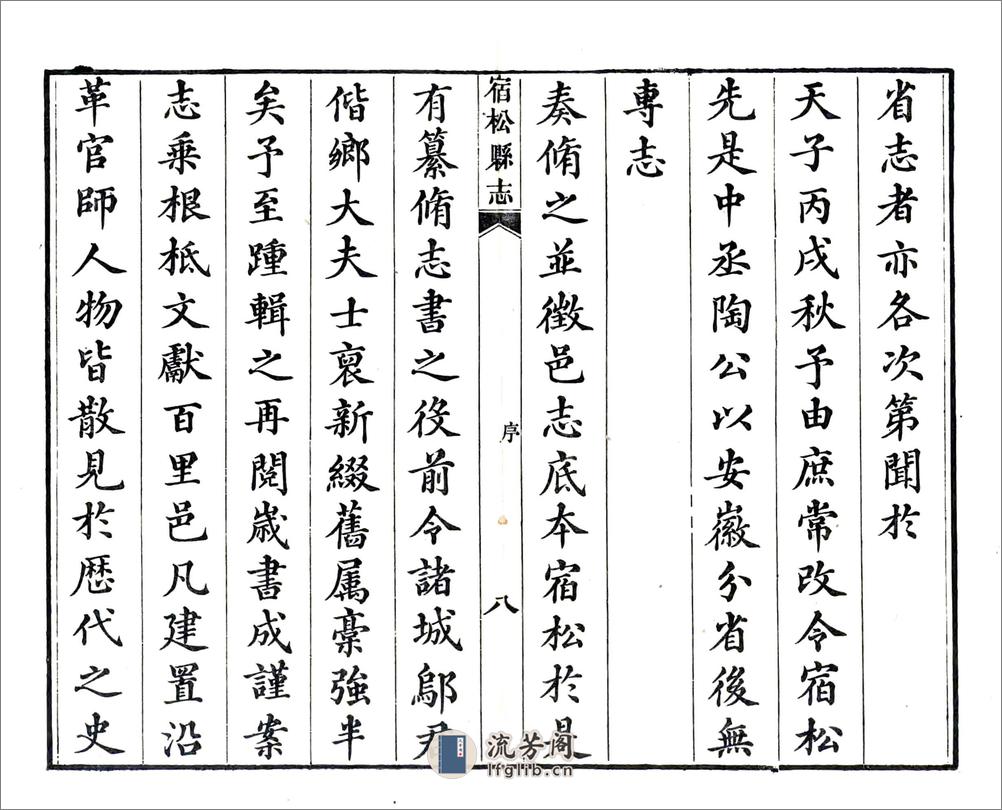 省志者亦各次第聞於
天子丙戌秋予由庶常改令宿松
先是中丞陶公以安徽分省後無
專志
奏脩之並徵邑志底本宿松於是
宿松縣志
序
八
有纂脩志書之役前令諸城鄔尹
偕鄉大夫士裒新綴舊属稾強半
矣予至踵輯之再閱歲書成謹案
志乘根柢文獻百里邑凡建置沿
革官師人物皆散見於歷代之史
流芳阁
lfglib.cn